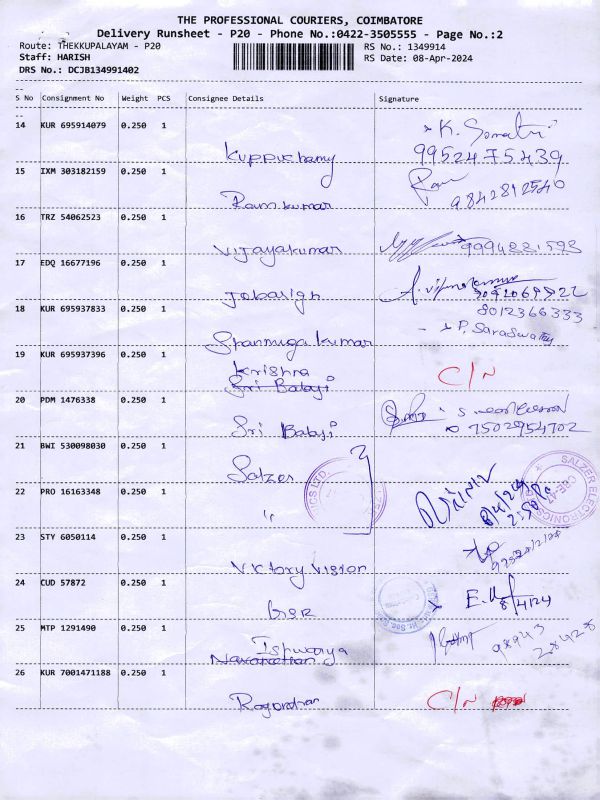 THE PROFESSIONAL COURIERS, COIMBATORE
Delivery Runsheet - P20 - Phone No.:0422-3505555 - Page No.:2
Route: THEKKUPALAYAM - P20 RS No.: 1349914
Staff: HARISH RS Date: 08-Apr-2024
DRS No.: DCJB134991402
S No Consignment No Weight PCS Consignee Details Signature
14 KUR 695914079 0.250 1
Kuppuchamy 99524 75439
15 IXM 303182159 0.250 1
Ramkumar 9842812540
16 TRZ 54062523 0.250 1
Vijayakumar
17 EDQ 16677196 0.250 1
18 KUR 695937833 0.250 1
8012366333
Shanmuga Kumar P. Saraswathy
19 KUR 695937396 0.250 1
Krishna C/N
Sri Balaji
20 PDM 1476338 0.250 1
Sri Balaji 7502954702
21 BWI 530098030 0.250 1
Salzer
22 PRO 16163348 0.250 1
"
SALZER ELECTRONICS
23 STY 6050114 0.250 1
Victory Vision
24 CUD 57872 0.250 1
GSR 8/4/24
25 MTP 1291490 0.250 1
Ishwarya 98943
28428
26 KUR 7001471188 0.250 1
C/N